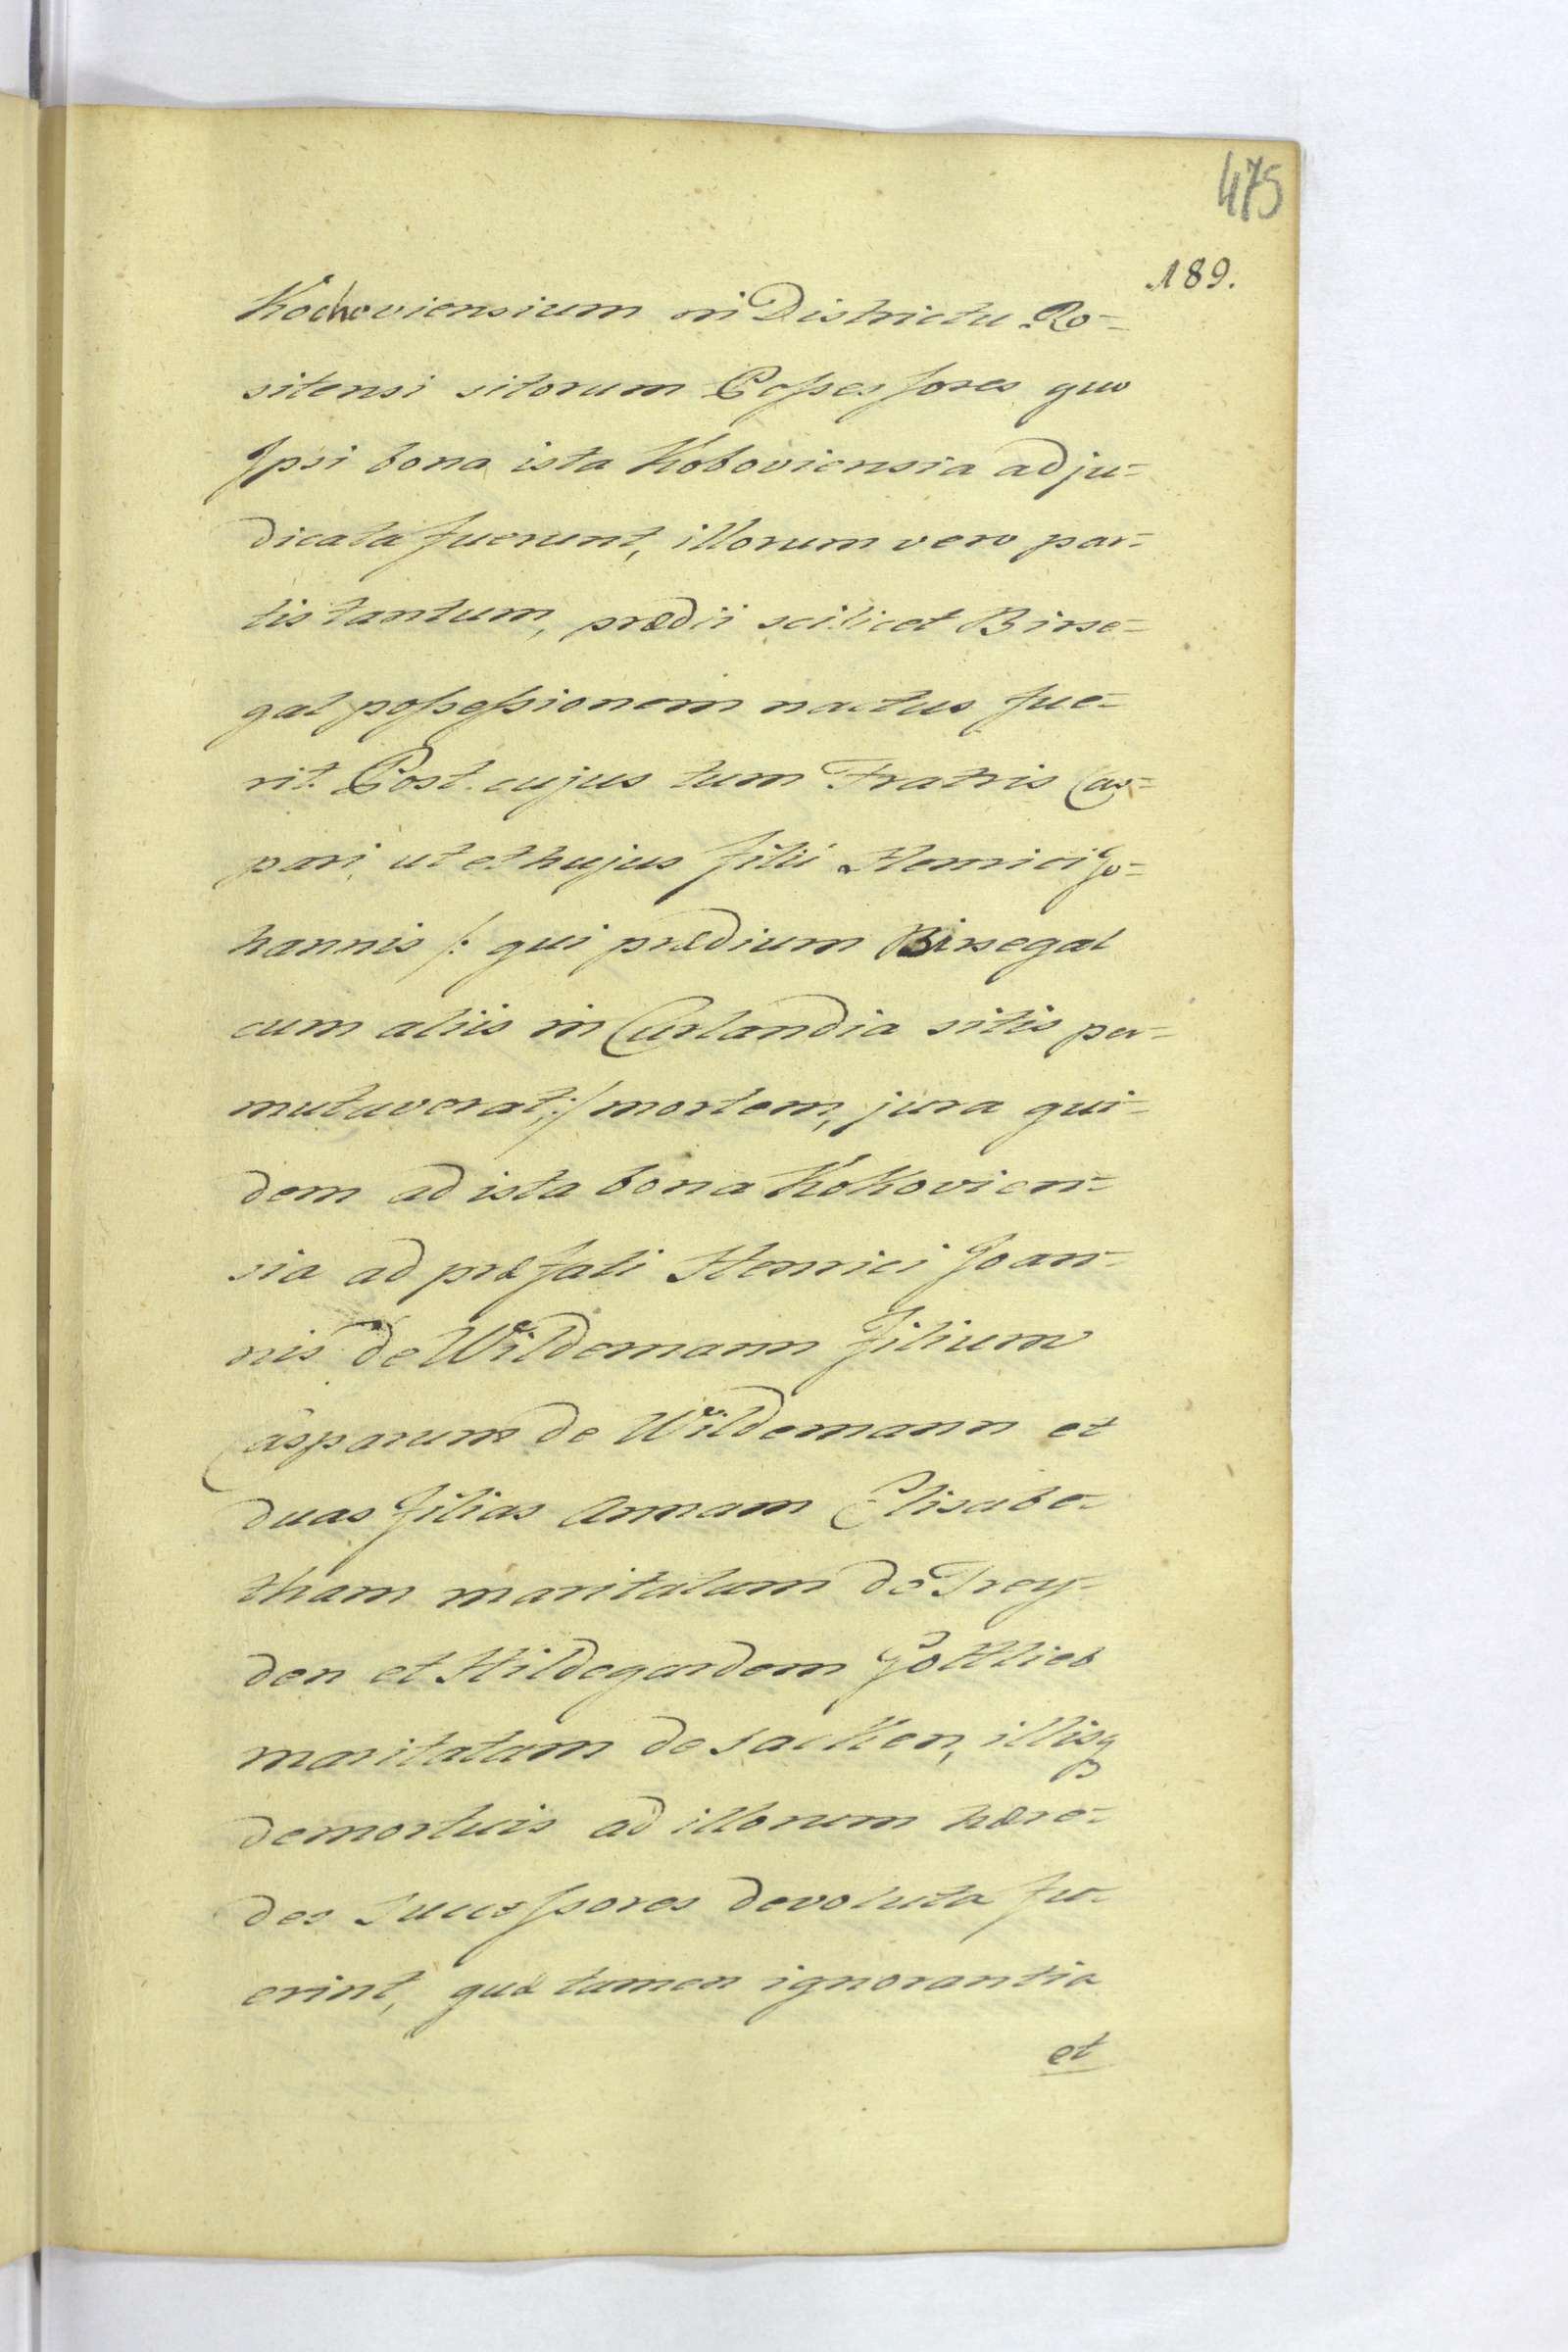 475
189.
Kochoviensium in Districtu Ro-
sitensi sitorum Possessores quo
Ipsi bona ista Kokoviensia adju-
dicata fuerunt, illorum vero par-
tis tantum, prædii scilicet Birse-
gal possessionem nactus fue-
rit. Post cujus tum Fratris Cas-
pari, ut et hujus filii Henrici Jo-
hannis /: qui prædium Birsegal
cum aliis in Curlandia sitis per-
mutaverat :/ mortem, jura qui-
dem ad ista bona Kokovien-
sia ad præfati Henrici Joan-
nis de Wildemann filium
Casparum de Wildemann et
duas filias Annam Elisabe-
tham maritatam de Trey-
den et Hildegardem Gottlieb
maritatam de Sacken, illisq
demortuis ad illorum hære-
des Successores devoluta fu-
erint, quæ tamen ignorantia
et